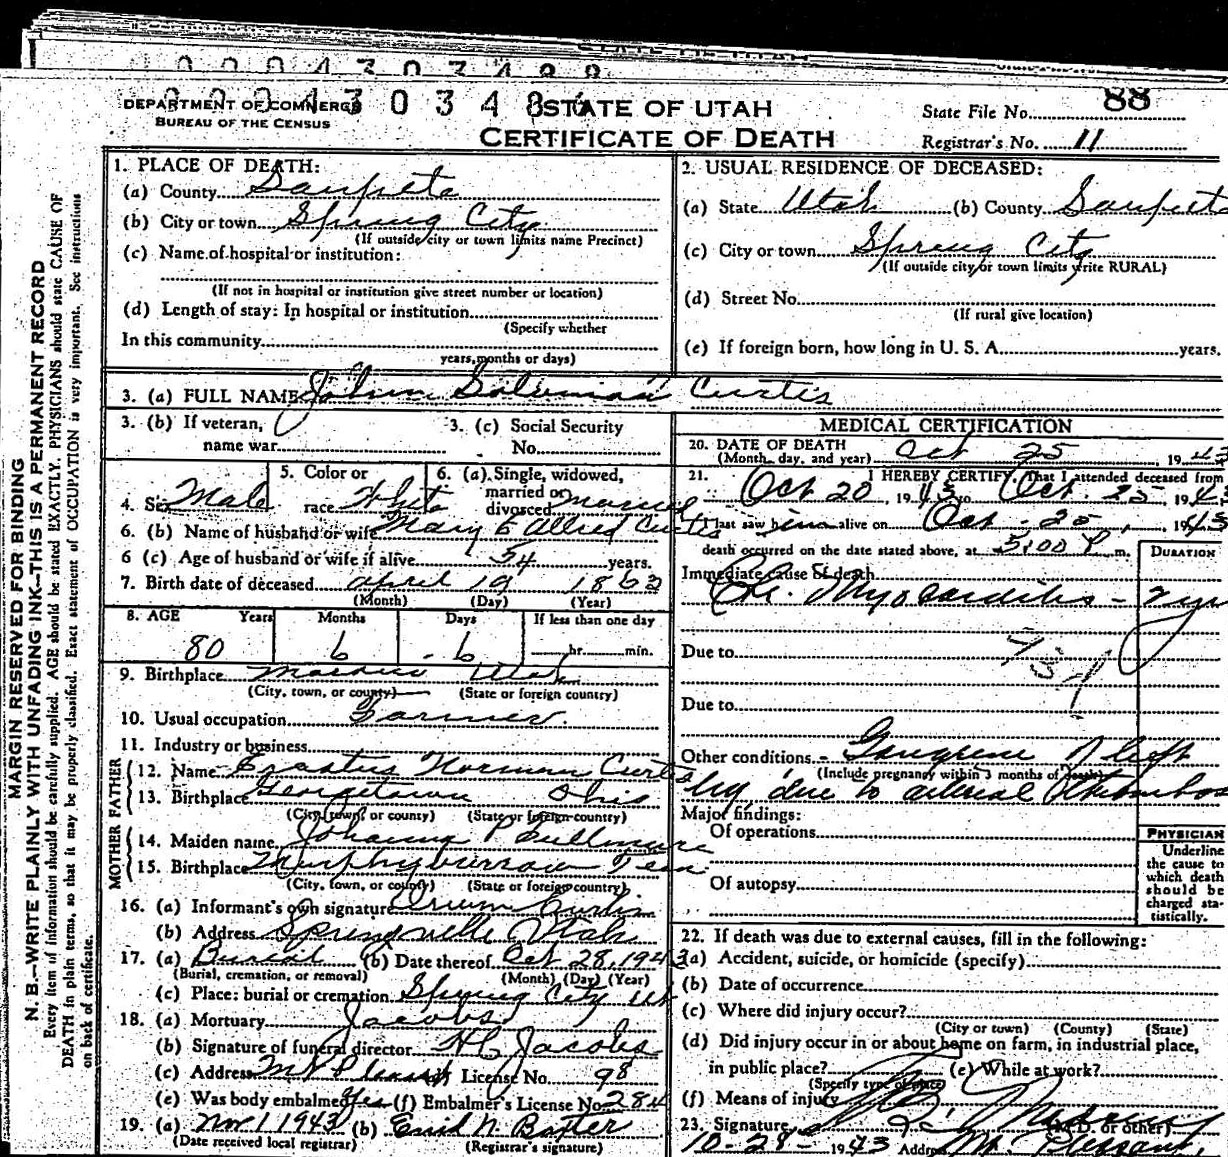 0 0 0 4 3 0 3 4 8 8
0 0 0 4 3 0 3 4 8
DEPARTMENT OF COMMERCE
BUREAU OF THE CENSUS
STATE OF UTAH
CERTIFICATE OF DEATH
State File No. 88
Registrar's No. 11
MARGIN RESERVED FOR BINDING
N. B.—WRITE PLAINLY WITH UNFADING INK—THIS IS A PERMANENT RECORD
Every item of information should be carefully supplied. AGE should be stated EXACTLY. PHYSICIANS should state CAUSE OF
DEATH in plain terms, so that it may be properly classified. Exact statement of OCCUPATION is very important. See instructions
on back of certificate.
1. PLACE OF DEATH:
(a) County Sanpete
(b) City or town Spring City
(If outside city or town limits name Precinct)
(c) Name of hospital or institution:
(If not in hospital or institution give street number or location)
(d) Length of stay: In hospital or institution
(Specify whether
In this community
years, months or days)
2. USUAL RESIDENCE OF DECEASED:
(a) State Utah (b) County Sanpet
(c) City or town Spring City
(If outside city or town limits write RURAL)
(d) Street No.
(If rural give location)
(e) If foreign born, how long in U. S. A. years.
3. (a) FULL NAME John Soloman Curtis
3. (b) If veteran,
name war
3. (c) Social Security
No.
4. Sex Male
5. Color or
race White
6. (a) Single, widowed,
married or
divorced married
6. (b) Name of husband or wife Mary E Allred Curtis
6 (c) Age of husband or wife if alive 54 years.
7. Birth date of deceased April 19 1863
(Month) (Day) (Year)
8. AGE Years Months Days If less than one day
80 6 6 hr. min.
9. Birthplace Utah
(City, town, or county) (State or foreign country)
10. Usual occupation Farmer
11. Industry or business
FATHER
12. Name Erastus Norman Curtis
13. Birthplace Georgetown Ohio
(City, town, or county) (State or foreign country)
MOTHER
14. Maiden name Johanna P Fullmore
15. Birthplace Murphyburrow Tenn
(City, town, or county) (State or foreign country)
16. (a) Informant's own signature Curtis
(b) Address Springville Utah
17. (a) Burial (b) Date thereof Oct 28, 1943
(Burial, cremation, or removal) (Month) (Day) (Year)
(c) Place: burial or cremation Spring City Ut
18. (a) Mortuary Jacobs
(b) Signature of funeral director Jacobs
(c) Address Mt Pleasant License No. 98
(e) Was body embalmed Yes (f) Embalmer's License No. 284
19. (a) Nov 1 1943 (b) Enid N. Baxter
(Date received local registrar) (Registrar's signature)
MEDICAL CERTIFICATION
20. DATE OF DEATH
(Month, day, and year) Oct 25, 1943
21. I HEREBY CERTIFY, That I attended deceased from
Oct 20, 1943 to Oct. 25, 194
I last saw him alive on Oct. 25, 1943
death occurred on the date stated above, at 5:00 P. m.
DURATION
Immediate cause of death
Chr. Myocarditis - 2 yr
Due to
Due to
Other conditions - Gangrene of left
(Include pregnancy within 3 months of death)
leg due to arterial thrombos
Major findings:
Of operations
Of autopsy
PHYSICIAN
Underline
the cause to
which death
should be
charged sta-
tistically.
22. If death was due to external causes, fill in the following:
(a) Accident, suicide, or homicide (specify)
(b) Date of occurrence
(c) Where did injury occur?
(City or town) (County) (State)
(d) Did injury occur in or about home on farm, in industrial place,
in public place? (e) While at work?
(Specify type of place)
(f) Means of injury
23. Signature (M.D. or other)
10-28- 1943 Address Mt. Pleasant,